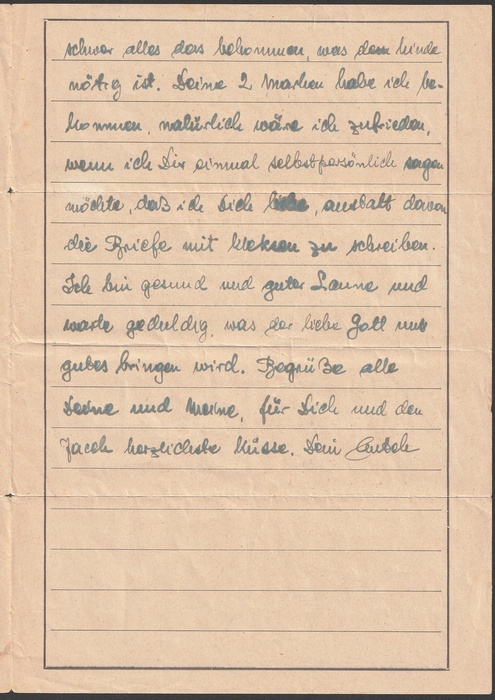 schwer alles das bekommen, was dem Kinde
nötig ist. Deine 2 Marken habe ich be-
kommen, natürlich wäre ich zufrieden,
wenn ich Dir einmal selbstpersönlich sagen
möchte, daß ich Dich liebe, anstatt davon
die Briefe mit Kleksen zu schreiben.
Ich bin gesund und guter Laune und
warte geduldig, was der liebe Gott uns
gutes bringen wird. Begrüße alle
Deine und Meine, für Dich und den
Jacek herzlichste Küsse. Dein